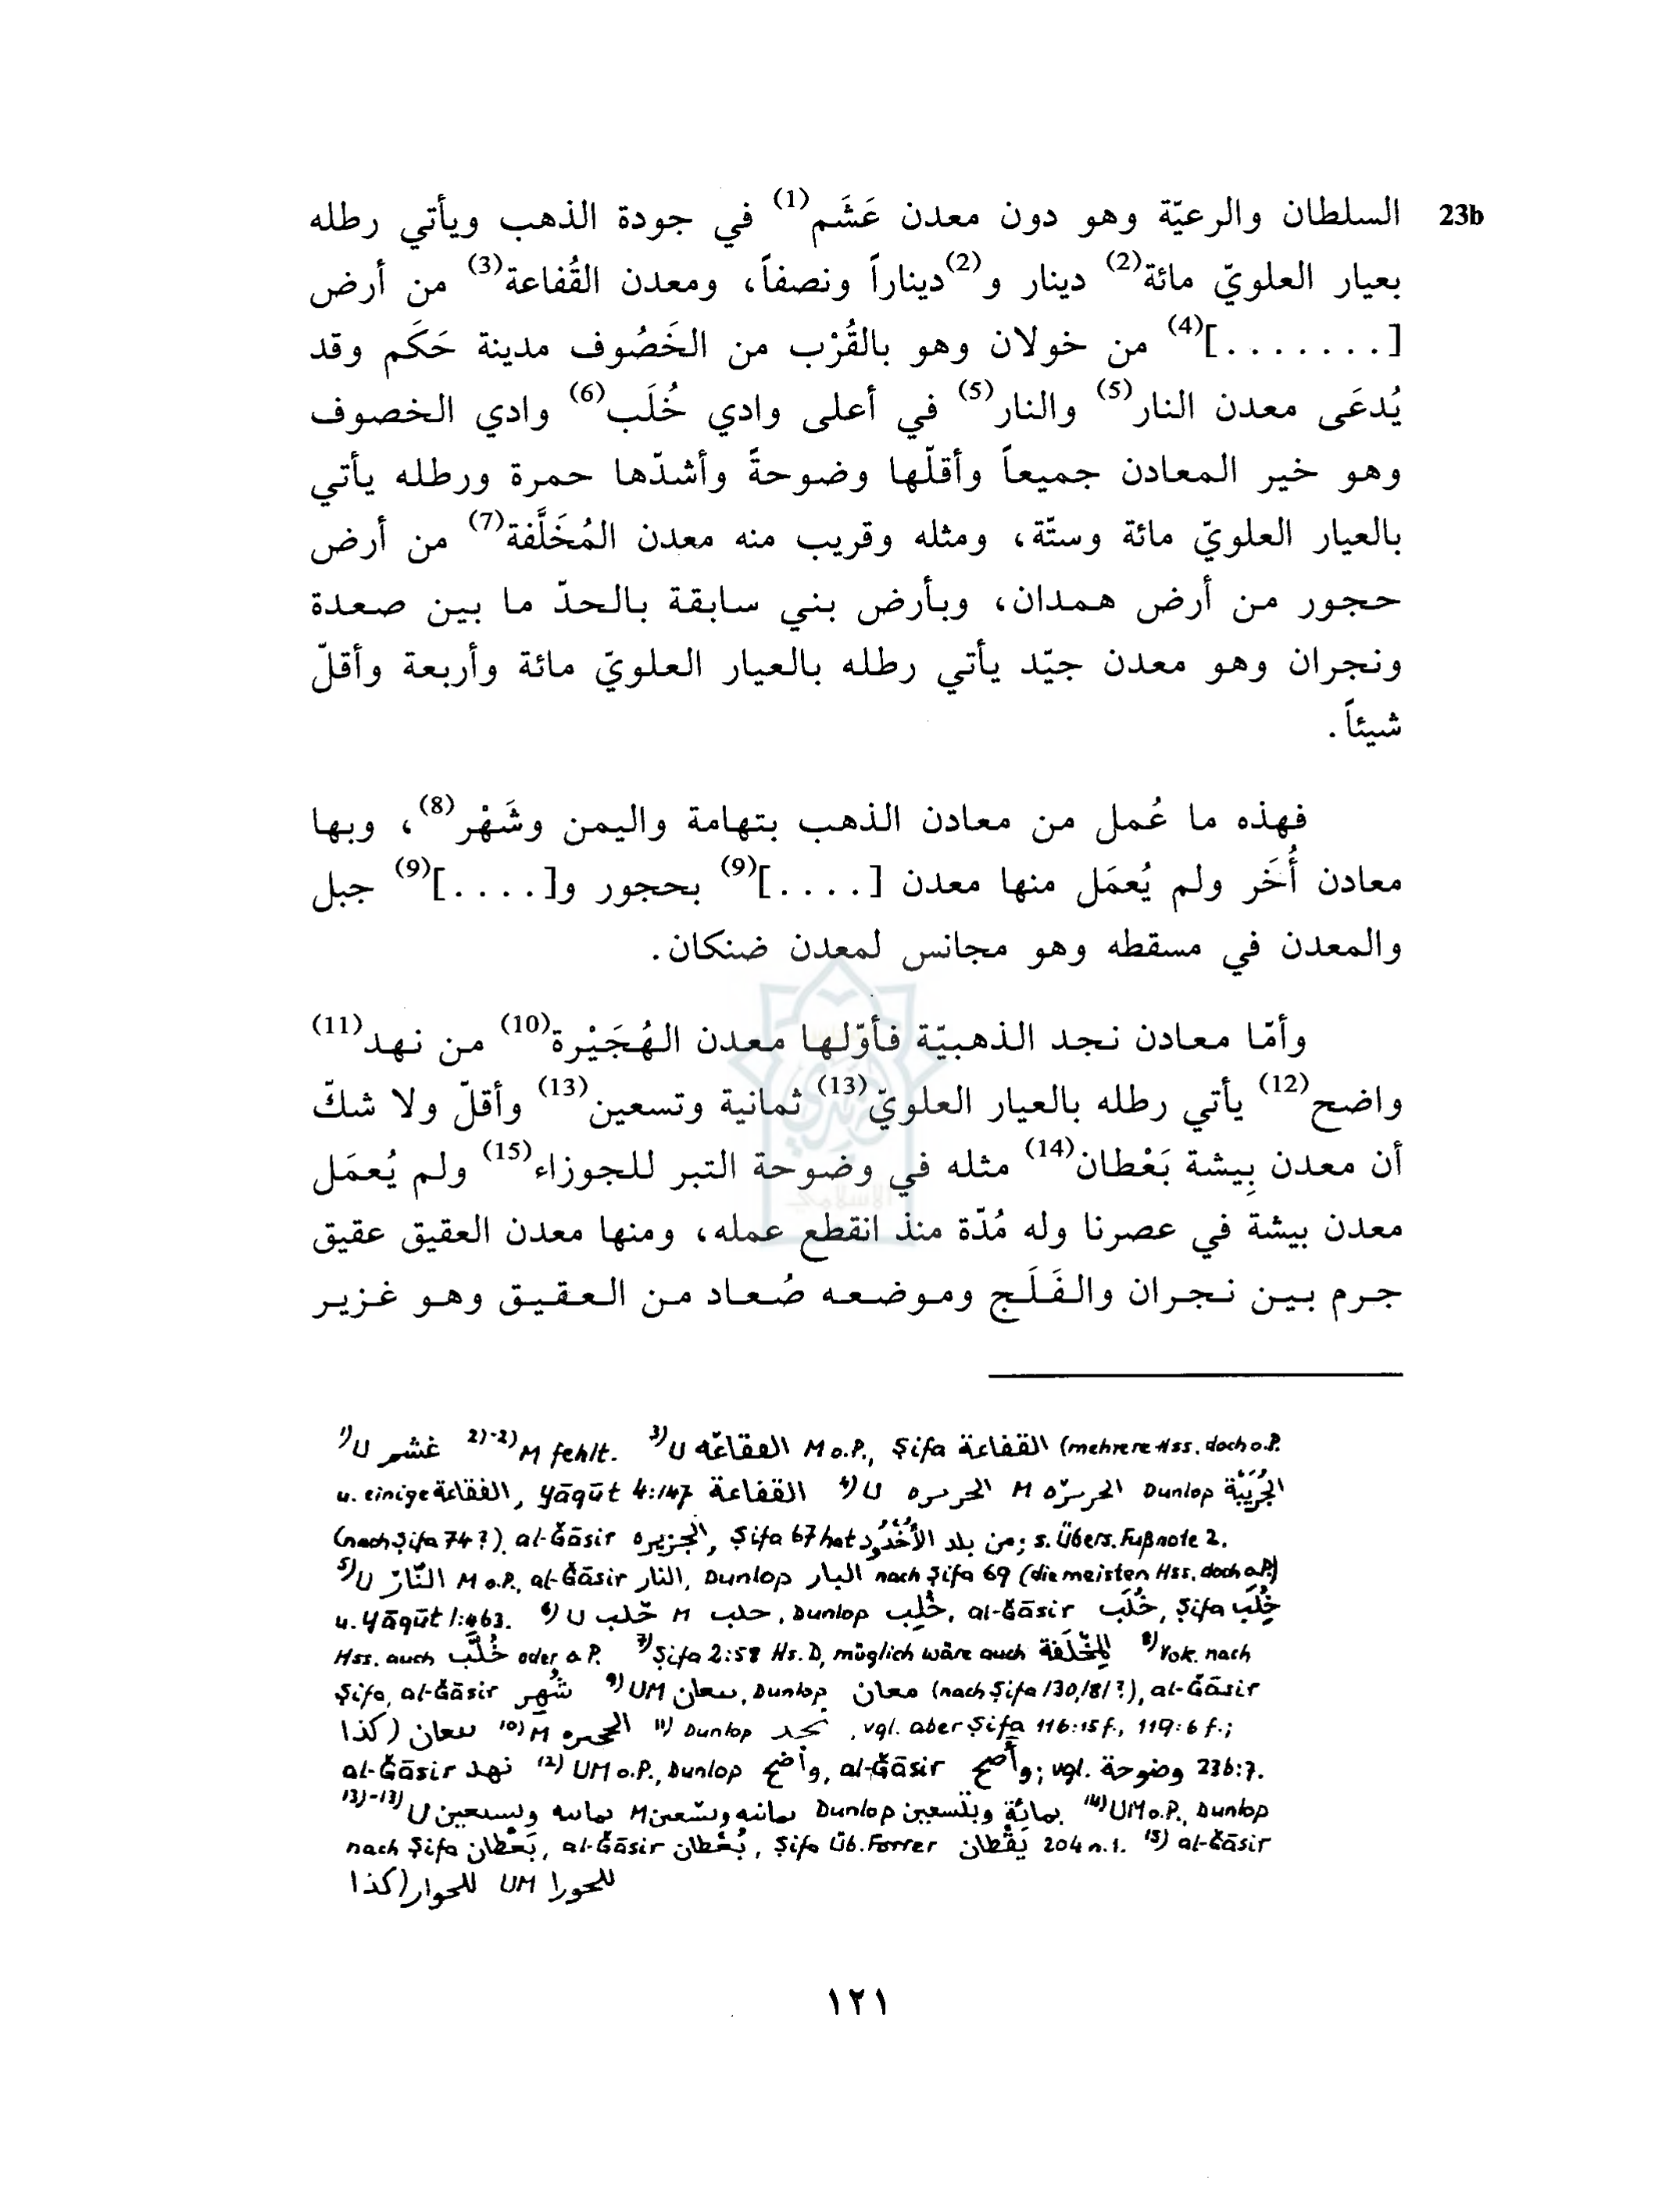 23b السلطان والرعيّة وهو دون معدن عَشَم(1) في جودة الذهب ويأتي رطله
بعيار العلويّ مائة(2) دينار و(2)ديناراً ونصفاً، ومعدن القُفاعة(3) من أرض
[.......](4) من خولان وهو بالقُرْب من الخَصُوف مدينة حَكَم وقد
يُدعَى معدن النار(5) والنار(5) في أعلى وادي خُلَب(6) وادي الخصوف
وهو خير المعادن جميعاً وأقلّها وضوحةً وأشدّها حمرة ورطله يأتي
بالعيار العلويّ مائة وستّة، ومثله وقريب منه معدن المُخَلَّفة(7) من أرض
حجور من أرض همدان، وبأرض بني سابقة بالحدّ ما بين صعدة
ونجران وهو معدن جيّد يأتي رطله بالعيار العلويّ مائة وأربعة وأقلّ
شيئاً.
فهذه ما عُمل من معادن الذهب بتهامة واليمن وشَهْر(8)، وبها
معادن أُخَر ولم يُعمَل منها معدن [....](9) بحجور و[....](9) جبل
والمعدن في مسقطه وهو مجانس لمعدن ضنكان.
وأمّا معادن نجد الذهبيّة فأوّلها معدن الهُجَيْرة(10) من نهد(11)
واضح(12) يأتي رطله بالعيار العلويّ(13) ثمانية وتسعين(13) وأقلّ ولا شكّ
أن معدن بِيشة بَعْطان(14) مثله في وضوحة التبر للجوزاء(15) ولم يُعمَل
معدن بيشة في عصرنا وله مُدّة منذ انقطع عمله، ومنها معدن العقيق عقيق
جرم بين نجران والفَلَج وموضعه صُعاد من العقيق وهو غزير
1) U غشم 2)-2) M fehlt. 3) U الفقاعَه M o.P., Ṣifa القفاعة (mehrere Hss. doch o.P.
u. einige الفقاعة), Yāqūt 4:147 القفاعة 4) U الحرسره M الحرسرّه Dunlop الجُرَيْبَة
(nach Ṣifa 74?), al-Ǧāsir الجزيره, Ṣifa 67 hat من بلد الأُخْدُود; s. Übers. Fußnote 2.
5) U النّار M o.P., al-Ǧāsir النار, Dunlop البار nach Ṣifa 69 (die meisten Hss. doch o.P.)
u. Yāqūt 1:463. 6) U خلب M حلب, Dunlop خُلِب, al-Ǧāsir خُلَب, Ṣifa خُلَب
Hss. auch خُلَّب oder o.P. 7) Ṣifa 2:58 Hs. D, möglich wäre auch المُخْلَفة 8) Vok. nach
Ṣifa, al-Ǧāsir شُهر 9) UM سعان, Dunlop معان (nach Ṣifa 130,181?), al-Ǧāsir
سعان (كذا) 10) M الححره 11) Dunlop نجد, vgl. aber Ṣifa 116:15f., 119:6f.;
al-Ǧāsir نهد 12) UM o.P., Dunlop وأضح, al-Ǧāsir وأصح; vgl. وضوحة 23b:7.
13)-13) U Dunlop بمائة 14) UM o.P., Dunlop
nach Ṣifa بَعْطان, al-Ǧāsir بُعْطان, Ṣifa Üb. Forrer يَقْطان 204 n.1. 15) al-Ǧāsir
للحوار (كذا) UM للحورا
١٢١